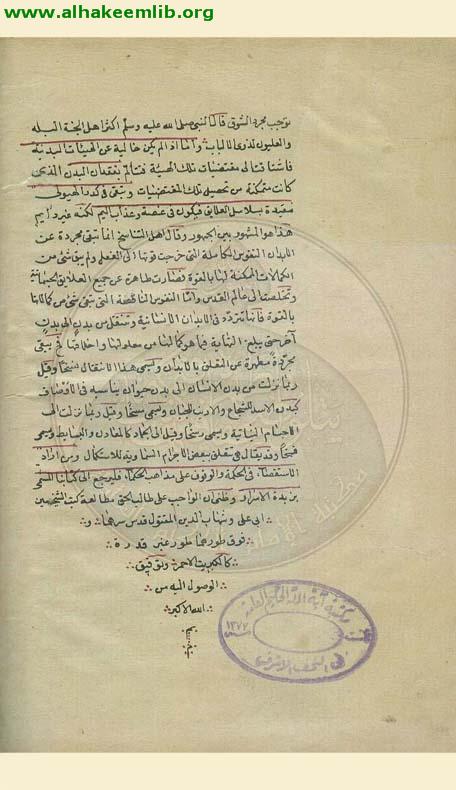 www.alhakeemlib.org
توجب مجرد الشوق قال النبي صلى الله عليه وسلم اكثر اهل الجنة البله
والعليون لذوى الالباب واما اذا لم يكن خالية عن الهيئات البدنية
فاشتاقت الى مقتضيات تلك الهيئة فتتألم بفقدان البدن الذى
كانت متمكنة من تحصيل تلك المقتضيات وتبقى فى كدر الهيولى
مقيدة بسلاسل العلايق فيكون فى غصة وعذاب اليم لكنه غير دايم
هذا هو المشهور بين الجمهور وقال اهل التناسخ انما تبقى مجردة عن
الابدان النفوس الكاملة التى خرجت قوتها الى الفعل ولم يبق شئ من
الكمالات الممكنة لها بالقوة فصارت طاهرة عن جميع العلايق الجسمانية
وتخلصت الى عالم القدس واما النفوس الناقصة التى بقى شئ من كمالاتها
بالقوة فانها تتردد فى الابدان الانسانية وتنتقل من بدن الى بدن
آخر حتى يبلغ النهاية فيما هو كمالها من علومها واخلاقها فح يبقى
مجردة مطهرة عن التعلق بالابدان ويسمى هذا الانتقال نسخا وقيل
ربما نزلت من بدن الانسان الى بدن حيوان يناسبه فى الاوصاف
كبدن الاسد للشجاع والارنب للجبان ويسمى مسخا وقيل ربما نزلت الى
الاجسام النباتية ويسمى رسخا وقيل الى الجماد كالمعادن والبسايط ويسمى
فسخا وقد يقال هى تتعلق ببعض الاجرام السماوية للاستكمال ومن اراد
الاستقصاء فى الحكمة والوقوف على مذاهب الحكماء فليرجع الى كتابنا المسمى
بزبدة الاسرار وظنى ان الواجب على طالب الحق مطالعة كتب الشيخين
ابى على وشهاب الدين المقتول قدس سرهما و
فوق طورهما طور عبر قدره
كالكبريت الاحمر وتوفيق
الوصول اليه من
الله الاكبر
مكتبة آية الله الحكيم العامة
١٣٧٧
فى النجف الاشرف